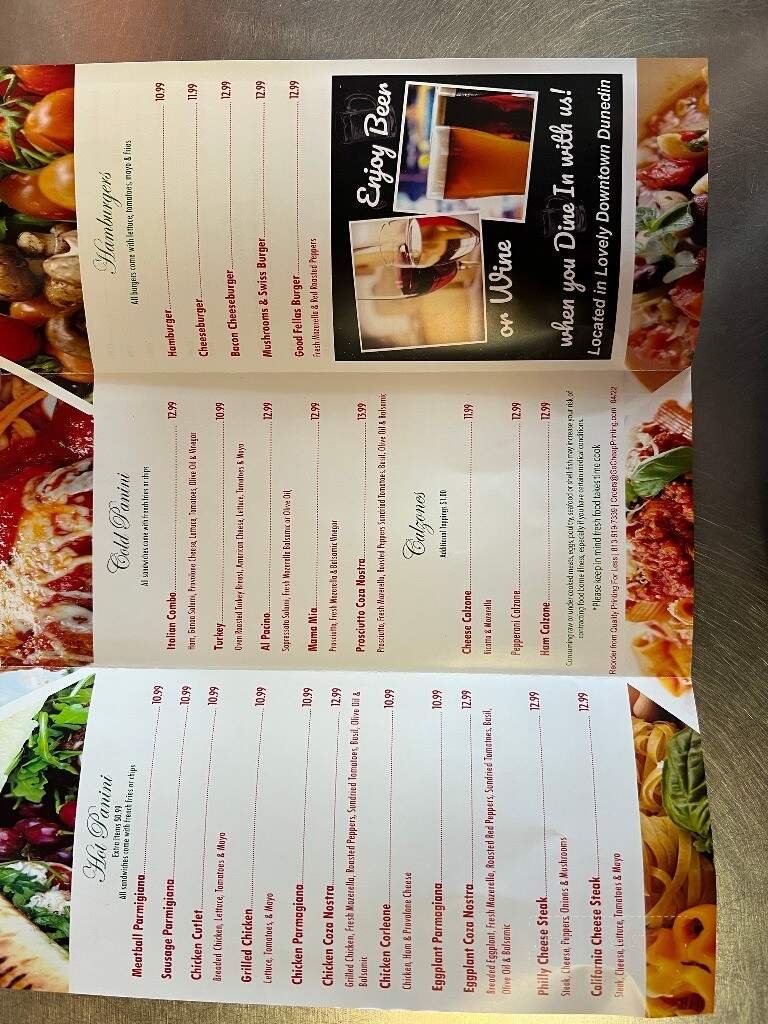 Hot Panini
Extra Items $0.99
All sandwiches come with french fries or chips
Meatball Parmigiana 10.99
Sausage Parmigiana 10.99
Chicken Cutlet 10.99
Breaded Chicken, Lettuce, Tomatoes & Mayo
Grilled Chicken 10.99
Lettuce, Tomatoes, & Mayo
Chicken Parmagiana 10.99
Chicken Coza Nostra 12.99
Grilled Chicken, Fresh Mozerella, Roasted Peppers, Sundried Tomatoes, Basil, Olive Oil &
Balsamic
Chicken Corleone 10.99
Chicken, Ham & Provolone Cheese
Eggplant Parmagiana 10.99
Eggplant Coza Nostra 12.99
Breaded Eggplant, Fresh Mozerella, Roasted Red Peppers, Sundried Tomatoes, Basil,
Olive Oil & Balsamic
Philly Cheese Steak 12.99
Steak, Cheese, Peppers, Onions & Mushrooms
California Cheese Steak 12.99
Steak, Cheese, Lettuce, Tomatoes & Mayo
Cold Panini
All sandwiches come with french fries or chips
Italian Combo 12.99
Ham, Genoa Salami, Provolone Cheese, Lettuce, Tomatoes, Olive Oil & Vinegar
Turkey 10.99
Oven Roasted Turkey Breast, American Cheese, Lettuce, Tomatoes & Mayo
Al Pacino 12.99
Sopressata Salami, Fresh Mozerella Balsamic or Olive Oil,
Mama Mia 12.99
Prosciutto, Fresh Mozerella & Balsamic Vinegar
Prosciutto Coza Nostra 13.99
Prosciutto, Fresh Mozerella, Roasted Peppers Sundried Tomatoes, Basil, Olive Oil & Balsamic
Calzones
Additional Toppings $1.00
Cheese Calzone 11.99
Ricotta & Mozerella
Pepperoni Calzone 12.99
Ham Calzone 12.99
Consuming raw or under cooked meats, eggs, poultry, seafood or shellfish may increase your risk of
contracting food borne illness, especially if you have certain medical conditions.
*Please keep in mind fresh food takes time cook
Reorder from Quality Printing For Less | 813-919-7339 | Orders@GoCheapPrinting.com 0422
Hamburgers
All burgers come with lettuce, tomatoes, mayo & fries
Hamburger 10.99
Cheeseburger 11.99
Bacon Cheeseburger 12.99
Mushrooms & Swiss Burger 12.99
Good Fellas Burger 12.99
Fresh Mozerella & Red Roasted Peppers
Enjoy Beer
or Wine
when you Dine In with us!
Located in Lovely Downtown Dunedin